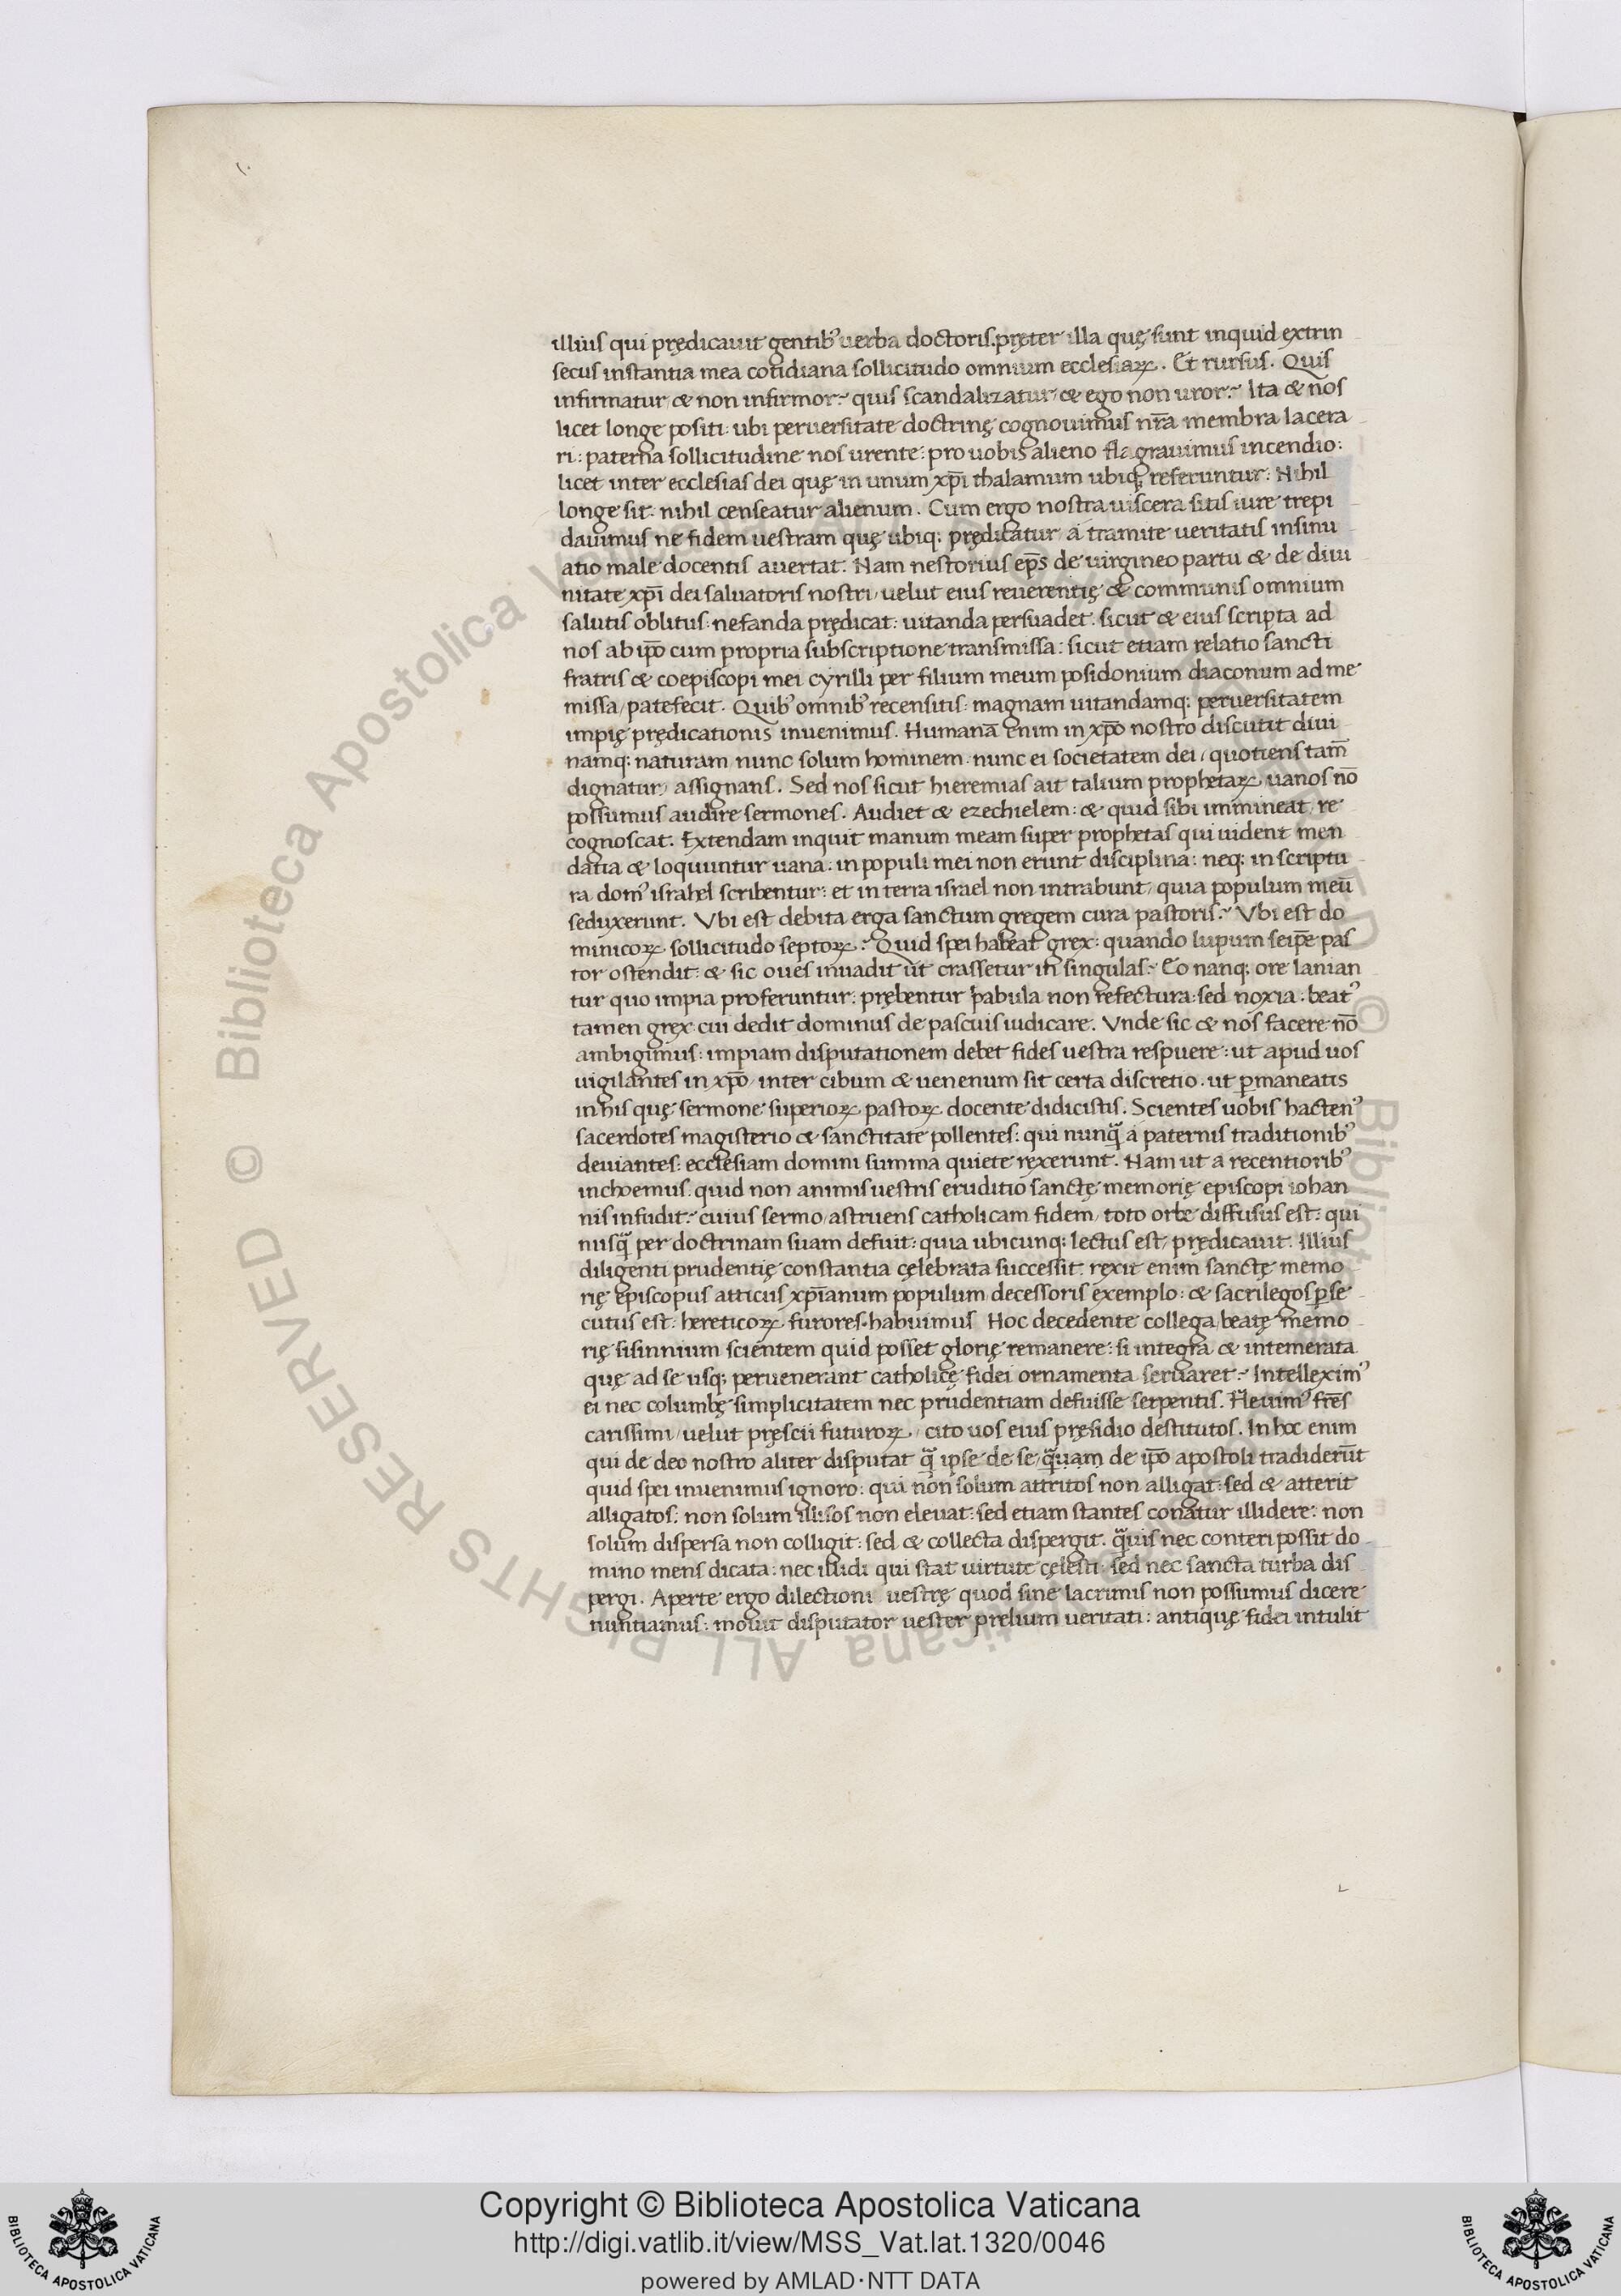 illius qui prędicauit gentibꝰ uerba doctoris. pręter illa quę sunt inquid extrin
secus instantia mea cotidiana sollicitudo omnium ecclesiaꝝ. Et rursus. Quis
infirmatur & non infirmor? quis scandalizatur & ego non uror? Ita & nos
licet longe positi: ubi peruersitate doctrinę cognouimus nr̄a membra lacera
ri: paterna sollicitudine nos urente: pro uobis alieno flagrauimus incendio:
licet inter ecclesias dei quę in unum xp̄i thalamum ubiq; referuntur: Nihil
longe sit: nihil censeatur alienum. Cum ergo nostra uiscera sitis iure trepi
dauimus ne fidem uestram quę ubiq; prędicatur a tramite ueritatis insinu
atio male docentis auertat. Nam nestorius ep̄s de uirgineo partu & de diui
nitate xp̄i dei saluatoris nostri/ uelut eius reuerentię & communis omnium
salutis oblitus: nefanda prędicat: uitanda persuadet. sicut & eius scripta ad
nos ab ip̄o cum propria subscriptione transmissa: sicut etiam relatio sancti
fratris & coepiscopi mei cyrilli per filium meum posidonium diaconum ad me
missa/ patefecit. Quibꝰ omnibꝰ recensitis: magnam uitandamq; peruersitatem
impię prędicationis inuenimus. Humanā enim in xp̄o nostro discutit diui
namq; naturam nunc solum hominem. nunc ei societatem dei/ quotiens tam̄
dignatur/ assignans. Sed nos sicut hieremias ait talium prophetaꝝ uanos nō
possumus audire sermones. Audiet & ezechielem: & quid sibi immineat/ re
cognoscat. Extendam inquit manum meam super prophetas qui uident men
datia & loquuntur uana: in populi mei non erunt disciplina: neq; in scriptu
ra domꝰ israhel scribentur: et in terra israel non intrabunt/ quia populum meū
seduxerunt. Vbi est debita erga sanctum gregem cura pastoris? Vbi est do
minicoꝝ sollicitudo septoꝝ? Quid spei habeat grex: quando lupum seip̄e pas
tor ostendit: & sic oues inuadit ut crassetur in singulas? Eo nanq; ore lanian
tur quo impia proferuntur: prębentur pabula non refectura: sed noxia. beatꝰ
tamen grex cui dedit dominus de pascuis iudicare. Vnde sic & nos facere nō
ambigimus: impiam disputationem debet fides uestra respuere: ut apud uos
uigilantes in xp̄o/ inter cibum & uenenum sit certa discretio. ut p̱maneatis
in his quę sermone superioꝝ pastoꝝ docente didicistis. Scientes uobis hactenꝰ
sacerdotes magisterio & sanctitate pollentes: qui nunq̄ a paternis traditionibꝰ
deuiantes: ecclesiam domini summa quiete rexerunt. Nam ut a recentioribꝰ
inchoemus. quid non animis uestris eruditio sanctę memorię episcopi iohan
nis infudit? cuius sermo/ astruens catholicam fidem/ toto orbe diffusus est: qui
nusq̄ per doctrinam suam defuit: quia ubicunq; lectus est/ prędicauit. Illius
diligenti prudentię constantia cęlebrata successit. rexit enim sanctę memo
rię episcopus atticus xp̄ianum populum decessoris exemplo: & sacrilegos p̱se
cutus est: hereticoꝝ furores. habuimus Hoc decedente collega beatę memo
rię sisinnium scientem quid posset glorię remanere: si integra & intemerata
quę ad se usq; peruenerant catholicę fidei ornamenta seruaret? Intelleximꝰ
ei nec columbę simplicitatem nec prudentiam defuisse serpentis. Fleuimꝰ fr̄es
carissimi/ uelut pręscii futuroꝝ/ cito uos eius pręsidio destitutos. In hoc enim
qui de deo nostro aliter disputat q̄ ipse de se/ q̄uam de ip̄o apostoli tradiderūt
quid spei inuenimus ignoro: qui non solum attritos non alligat: sed & atterit
alligatos: non solum illisos non eleuat: sed etiam stantes conatur illidere: non
solum dispersa non colligit: sed & collecta dispergit. q̄uis nec conteri possit do
mino mens dicata: nec illidi qui stat uirtute cęlesti: sed nec sancta turba dis
pergi. Aperte ergo dilectioni uestrę quod sine lacrimis non possumus dicere
nuntiamus: mouit disputator uester prelium ueritati: antiquę fidei intulit
© Biblioteca Apostolica Vaticana ALL RIGHTS RESERVED
© Biblioteca Apostolica Vaticana ALL RIGHTS RESERVED
Copyright © Biblioteca Apostolica Vaticana
http://digi.vatlib.it/view/MSS_Vat.lat.1320/0046
powered by AMLAD·NTT DATA
BIBLIOTECA APOSTOLICA VATICANA
BIBLIOTECA APOSTOLICA VATICANA